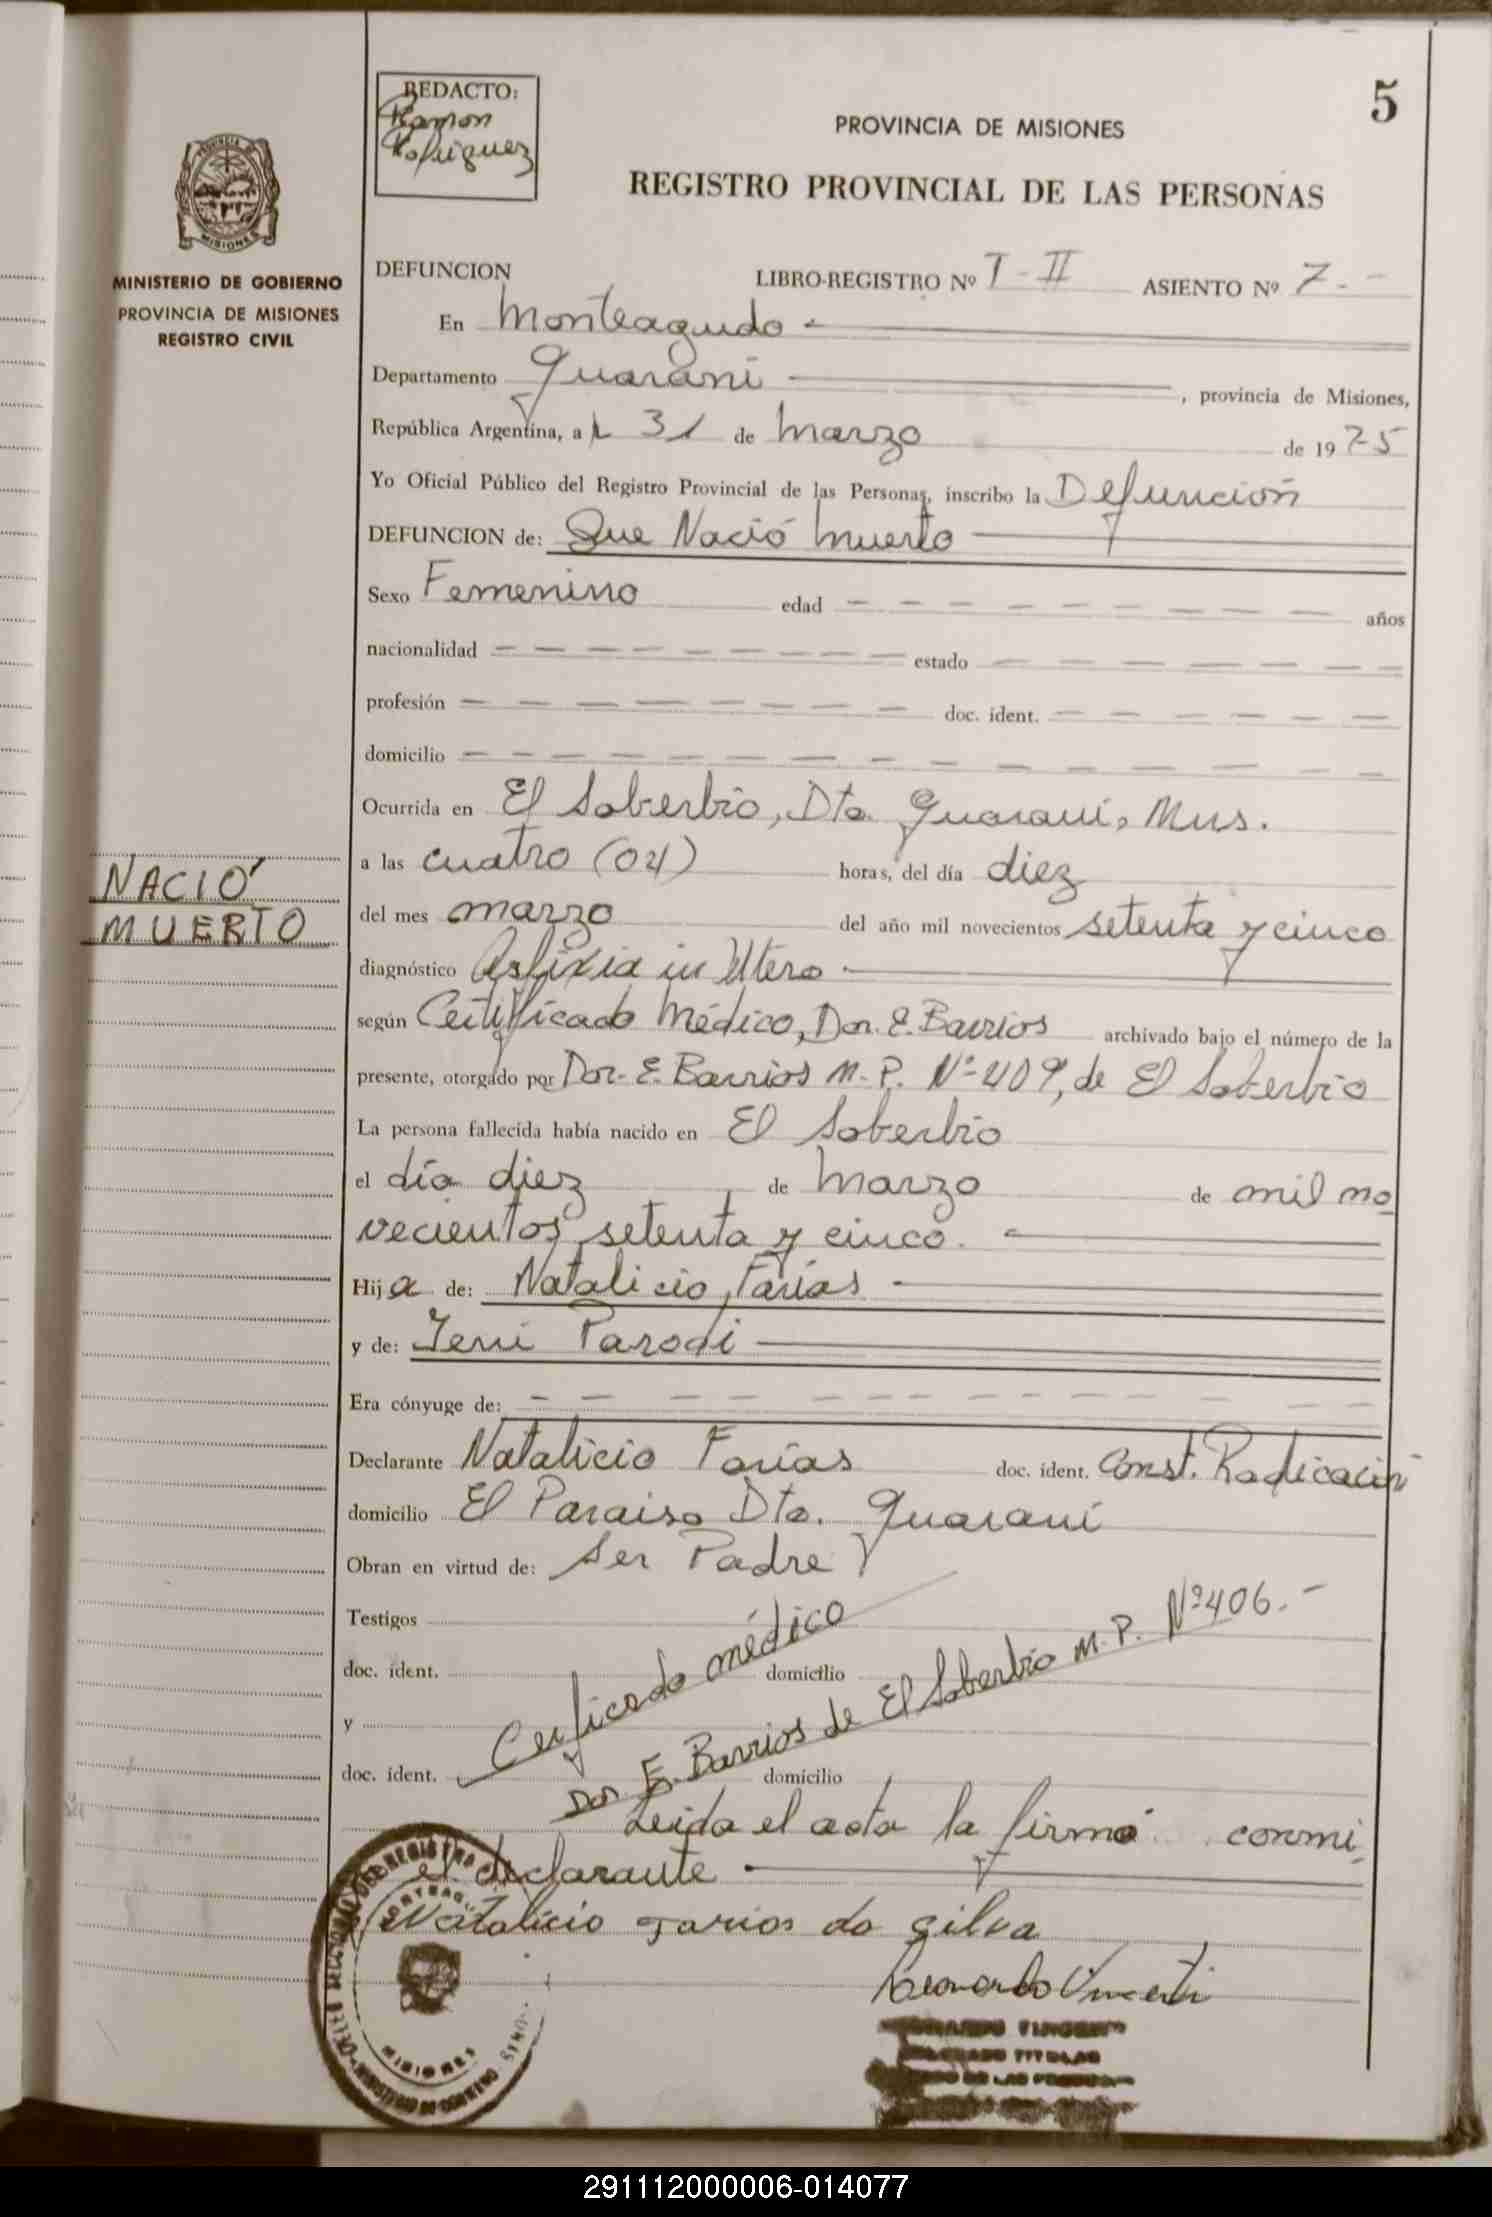 5
REDACTO:
Ramon
Rodriguez
PROVINCIA DE MISIONES
REGISTRO PROVINCIAL DE LAS PERSONAS
MISIONES
MINISTERIO DE GOBIERNO
PROVINCIA DE MISIONES
REGISTRO CIVIL
DEFUNCION LIBRO-REGISTRO Nº T-II ASIENTO Nº 7.-
En Monteagudo
Departamento Guarani, provincia de Misiones,
República Argentina, a 31 de Marzo de 1975
Yo Oficial Público del Registro Provincial de las Personas, inscribo la Defunción
DEFUNCION de: Que Nació Muerto
Sexo Femenino edad años
nacionalidad estado
profesión doc. ident.
domicilio
Ocurrida en El Soberbio, Dto. Guaraní, Mns.
a las cuatro (04) horas, del día diez
NACIÓ
MUERTO
del mes marzo del año mil novecientos setenta y cinco
diagnóstico Asfixia in Utero
según Certificado Médico, Dor. E. Barrios archivado bajo el número de la
presente, otorgado por Dor- E. Barrios M.P. Nº 409, de El Soberbio
La persona fallecida había nacido en El Soberbio
el día diez de Marzo de mil no
vecientos setenta y cinco.
Hija de: Natalicio Farias
y de: Jeni Parodi
Era cónyuge de:
Declarante Natalicio Farías doc. ident. Const. Radicación
domicilio El Paraiso Dto. Guaraní
Obran en virtud de: Ser Padre
Testigos
doc. ident. domicilio
y
doc. ident. domicilio
Cerficado médico
Dor E. Barrios de El Soberbio M.P. Nº 406.-
Leida el acta la firma conmi
el declarante
Natalicio Farios do Silva
Leonardo Vincenti
MISIONES
291112000006-014077